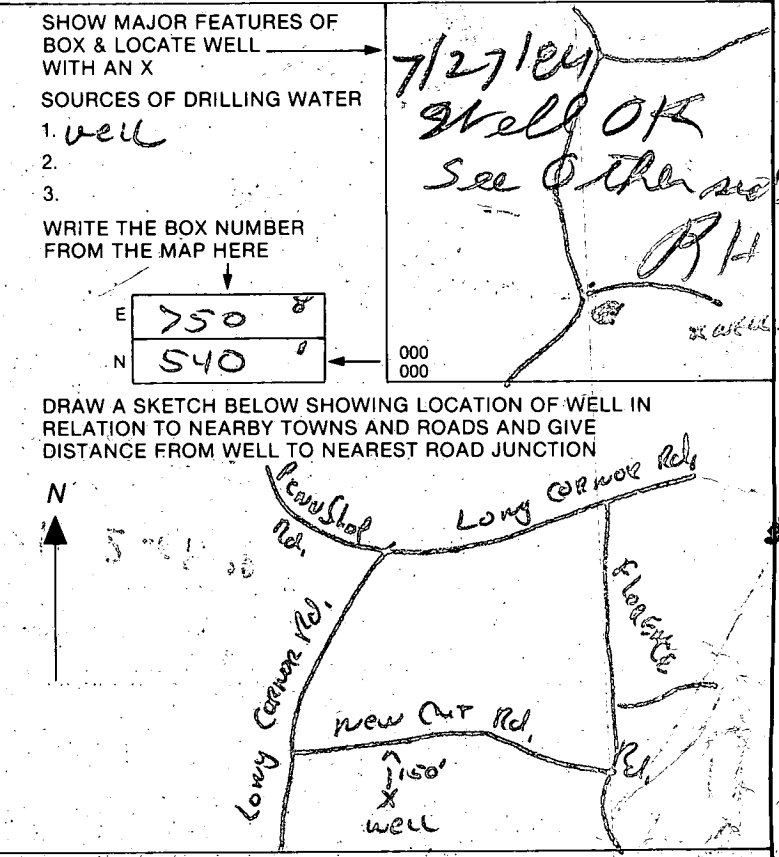 SHOW MAJOR FEATURES OF
BOX & LOCATE WELL
WITH AN X
SOURCES OF DRILLING WATER
1. well
2.
3.
WRITE THE BOX NUMBER
FROM THE MAP HERE
E 750
N 540
000
000
7/27/84
Well OK
See Other
RH
x well
DRAW A SKETCH BELOW SHOWING LOCATION OF WELL IN
RELATION TO NEARBY TOWNS AND ROADS AND GIVE
DISTANCE FROM WELL TO NEAREST ROAD JUNCTION
N
Penn Shop
Rd.
Long Cornor Rd.
Florence
Rd.
Long Cornor Rd.
New Cut Rd.
150'
X
well